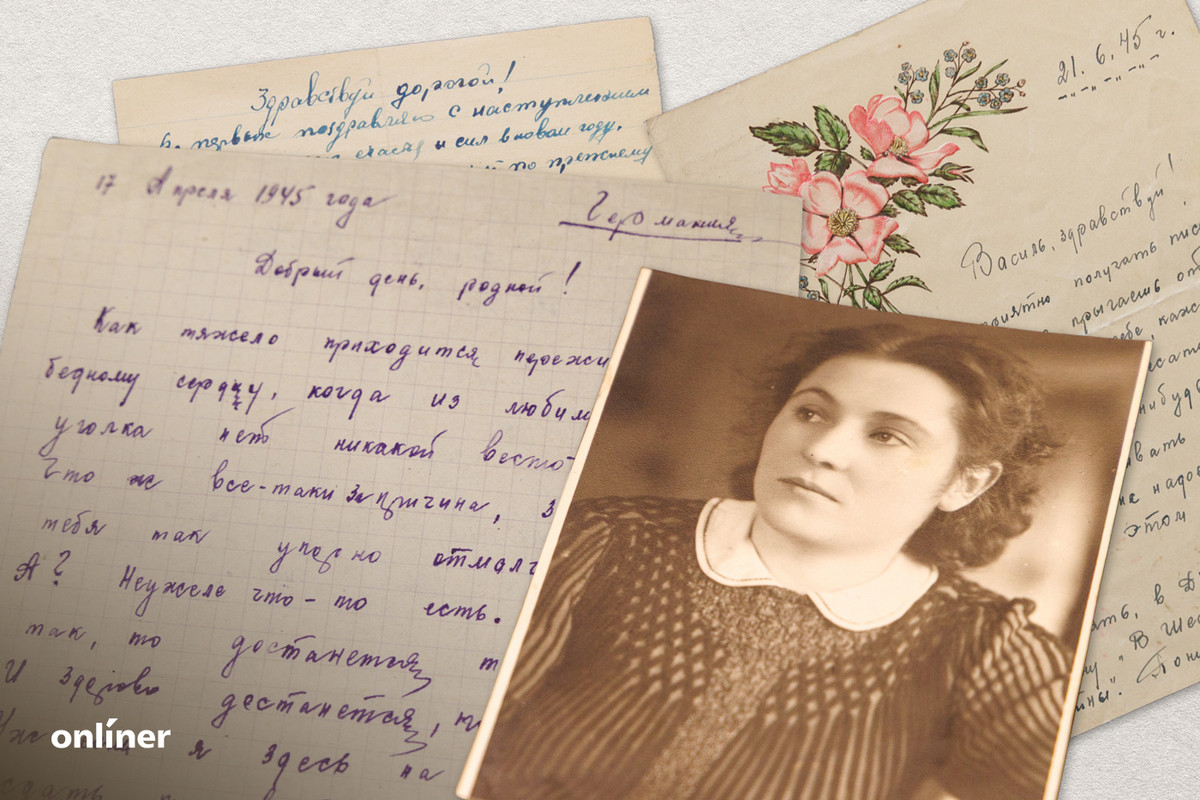 Здравствуй дорогой!
первых поздравляю с наступлением
счастья и сил в новом году.
по прежнему
17 Апреля 1945 года
Германия
Добрый день, родной!
Как тяжело приходится пережи
бедному сердцу, когда из любим
уголка нет никакой весто
Что ж все-таки за причина, з
тебя так упорно отмалч
А? Неужеле что-то есть.
так, то достанется т
И здорово достанется,
я здесь на
21.6.45 г.
Василь, здравствуй!
приятно получать пис
прыгаешь от
себе, каж
исат
нибудь
ивать
на надое
этом
ать, в
"В Ше
onlíner